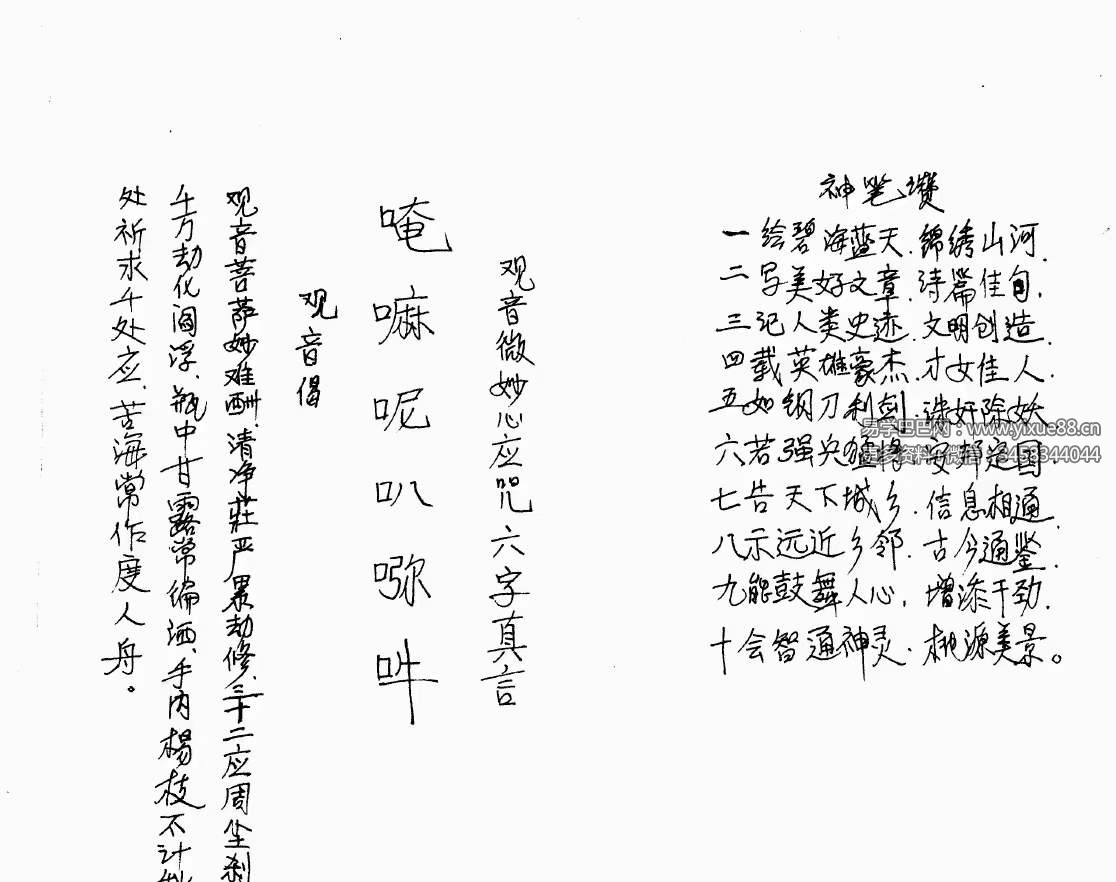 神笔讚
一绘碧海蓝天.锦绣山河.
二写美好文章.诗篇佳句.
三记人类史迹.文明创造.
四载英雄豪杰.才女佳人.
五如钢刀利剑.诛奸除妖
六若强兵猛将.安邦定国.
七告天下城乡.信息相通.
八示远近乡邻.古今通鉴.
九能鼓舞人心.增添干劲.
十会智通神灵.桃源美景。
易学巴巴网:www.yixue88.cn
观音微妙心应咒六字真言
唵嘛呢叭㖠吽
观音偈
观音菩萨妙难酬.清净莊严累劫修.三十二应周坐刹
千万劫化阎浮.瓶中甘露常编洒.手内楊枝不计
处祈求千处应.苦海常作度人舟。